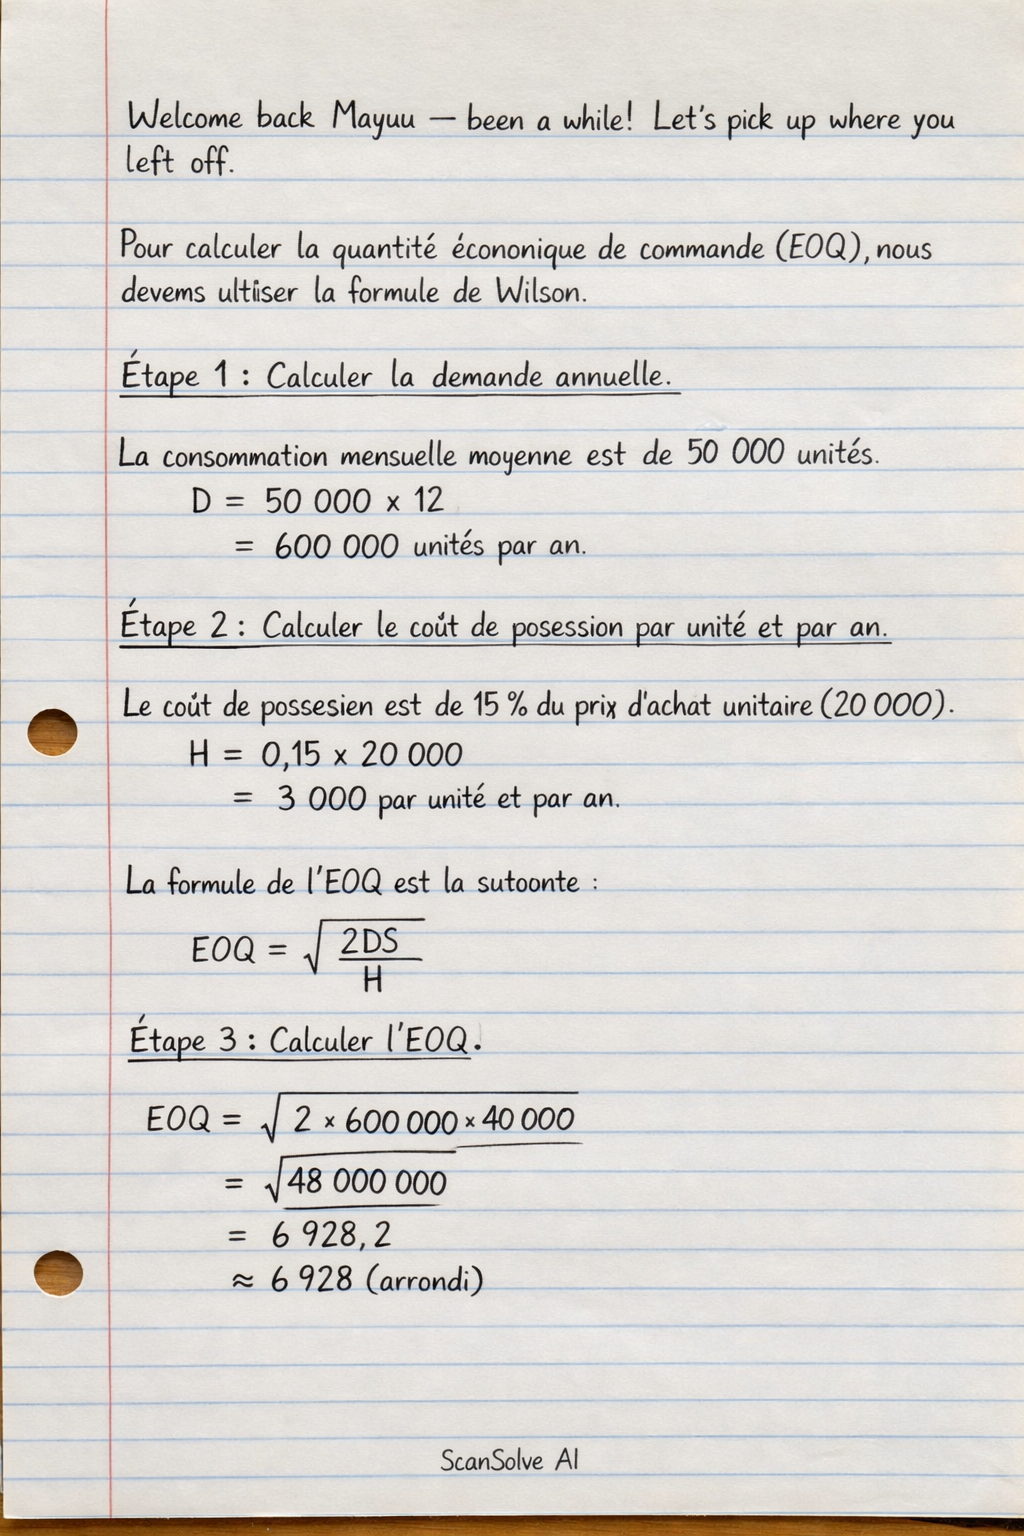 Welcome back Mayuu — been a while! Let's pick up where you
left off.
Pour calculer la quantité écononique de commande (EOQ), nous
devems ultiiser la formule de Wilson.
Étape 1 : Calculer la demande annuelle.
La consommation mensuelle moyenne est de 50 000 unités.
D = 50 000 x 12
= 600 000 unités par an.
Étape 2 : Calculer le coût de posession par unité et par an.
Le coût de possesien est de 15 % du prix d'achat unitaire (20 000).
H = 0,15 x 20 000
= 3 000 par unité et par an.
La formule de l'EOQ est la sutoonte :
EOQ = √ 2DS
H
Étape 3 : Calculer l'EOQ.
EOQ = √ 2 x 600 000 x 40 000
= √48 000 000
= 6 928,2
≈ 6 928 (arrondi)
ScanSolve AI